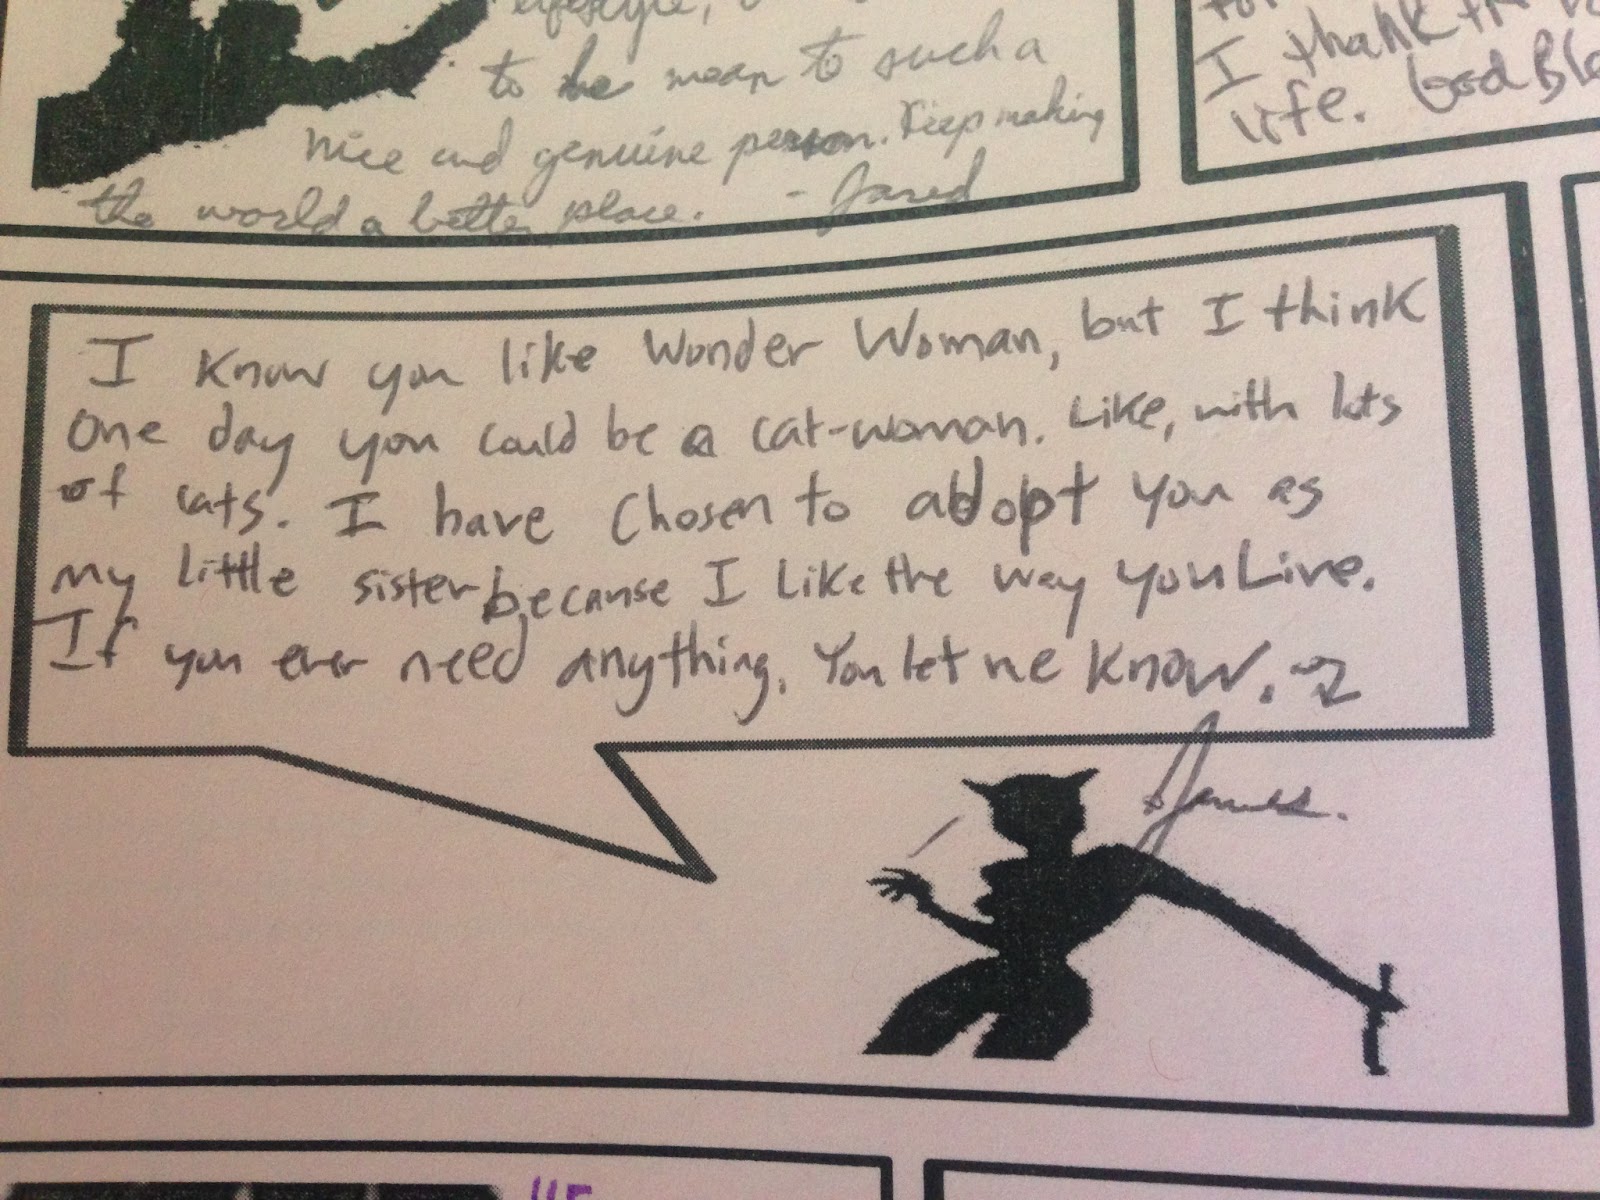 lifestyle,
to be mean to such a
nice and genuine person. Keep making
the world a better place. - Jared
I thank the
life. God Ble
I know you like Wonder Woman, but I think
One day you could be a cat-woman. Like, with lots
of cats. I have chosen to adopt you as
my little sister because I like the way you Live.
If you ever need anything, You let me know.
James.